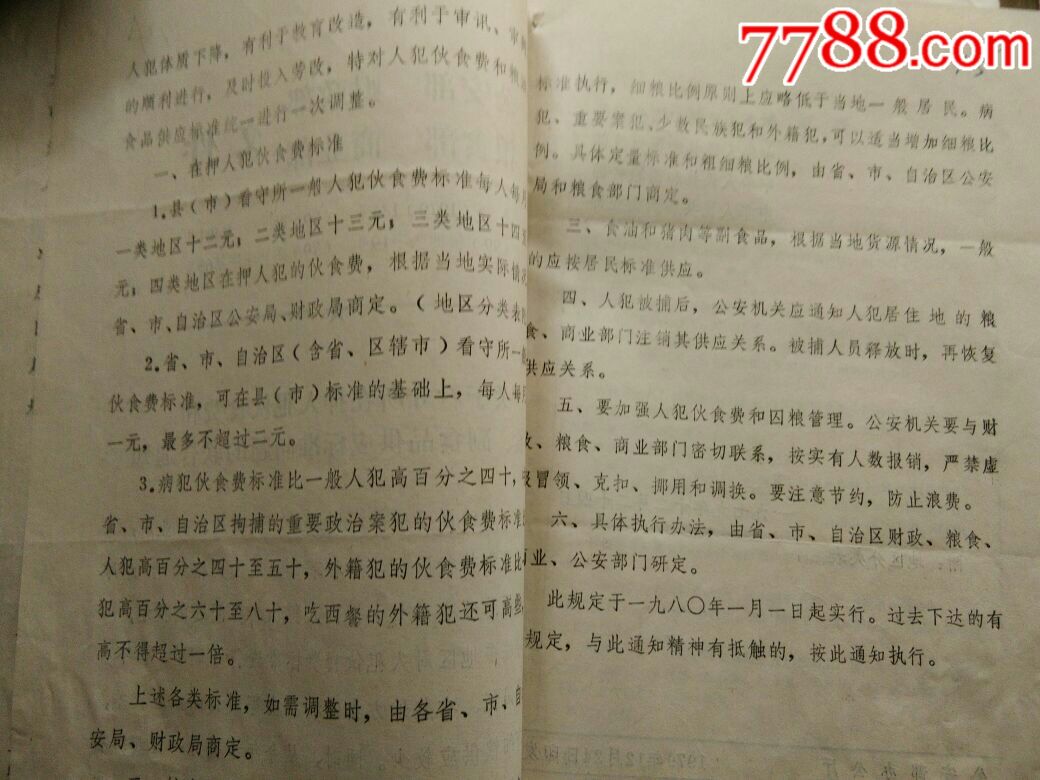 7788.com
人犯体质下降，有利于教育改造，有利于审讯、审
的顺利进行，及时投入劳改，特对人犯伙食费和粮
食品供应标准统一进行一次调整。
一、在押人犯伙食费标准
1.县（市）看守所一般人犯伙食费标准每人每月
一类地区十二元；二类地区十三元；三类地区十四
元；四类地区在押人犯的伙食费，根据当地实际情况
省、市、自治区公安局、财政局商定。（地区分类表
2.省、市、自治区（含省、区辖市）看守所一般
伙食费标准，可在县（市）标准的基础上，每人每月
一元，最多不超过二元。
3.病犯伙食费标准比一般人犯高百分之四十，
省、市、自治区拘捕的重要政治案犯的伙食费标准
人犯高百分之四十至五十，外籍犯的伙食费标准比
犯高百分之六十至八十，吃西餐的外籍犯还可高些
高不得超过一倍。
上述各类标准，如需调整时，由各省、市、自
安局、财政局商定。
标准执行，细粮比例原则上应略低于当地一般居民。病
犯、重要案犯、少数民族犯和外籍犯，可以适当增加细粮比
例。具体定量标准和粗细粮比例，由省、市、自治区公安
局和粮食部门商定。
三、食油和猪肉等副食品，根据当地货源情况，一般
的应按居民标准供应。
四、人犯被捕后，公安机关应通知人犯居住地的粮
食、商业部门注销其供应关系。被捕人员释放时，再恢复
供应关系。
五、要加强人犯伙食费和囚粮管理。公安机关要与财
政、粮食、商业部门密切联系，按实有人数报销，严禁虚
报冒领、克扣、挪用和调换。要注意节约，防止浪费。
六、具体执行办法，由省、市、自治区财政、粮食、
商业、公安部门研定。
此规定于一九八〇年一月一日起实行。过去下达的有
规定，与此通知精神有抵触的，按此通知执行。